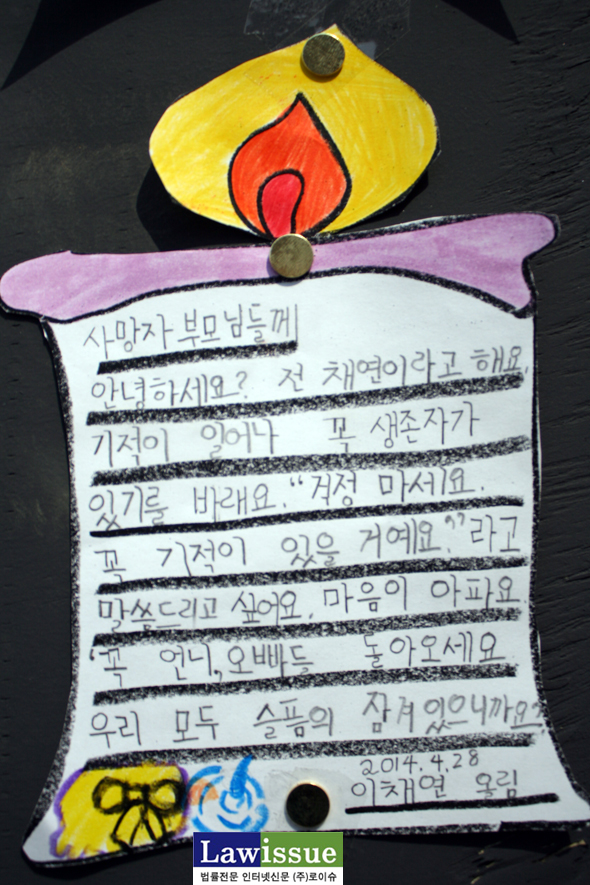 사망자 부모님들께
안녕하세요? 전 채연이라고 해요.
기적이 일어나 꼭 생존자가
있기를 바래요. "걱정 마세요.
꼭 기적이 있을 거예요." 라고
말씀드리고 싶어요. 마음이 아파요.
꼭 언니, 오빠들 돌아오세요
우리 모두 슬픔의 잠겨있으니까요?
2014.4.28
이채연 올림
Lawissue
법률전문 인터넷신문 (주)로이슈